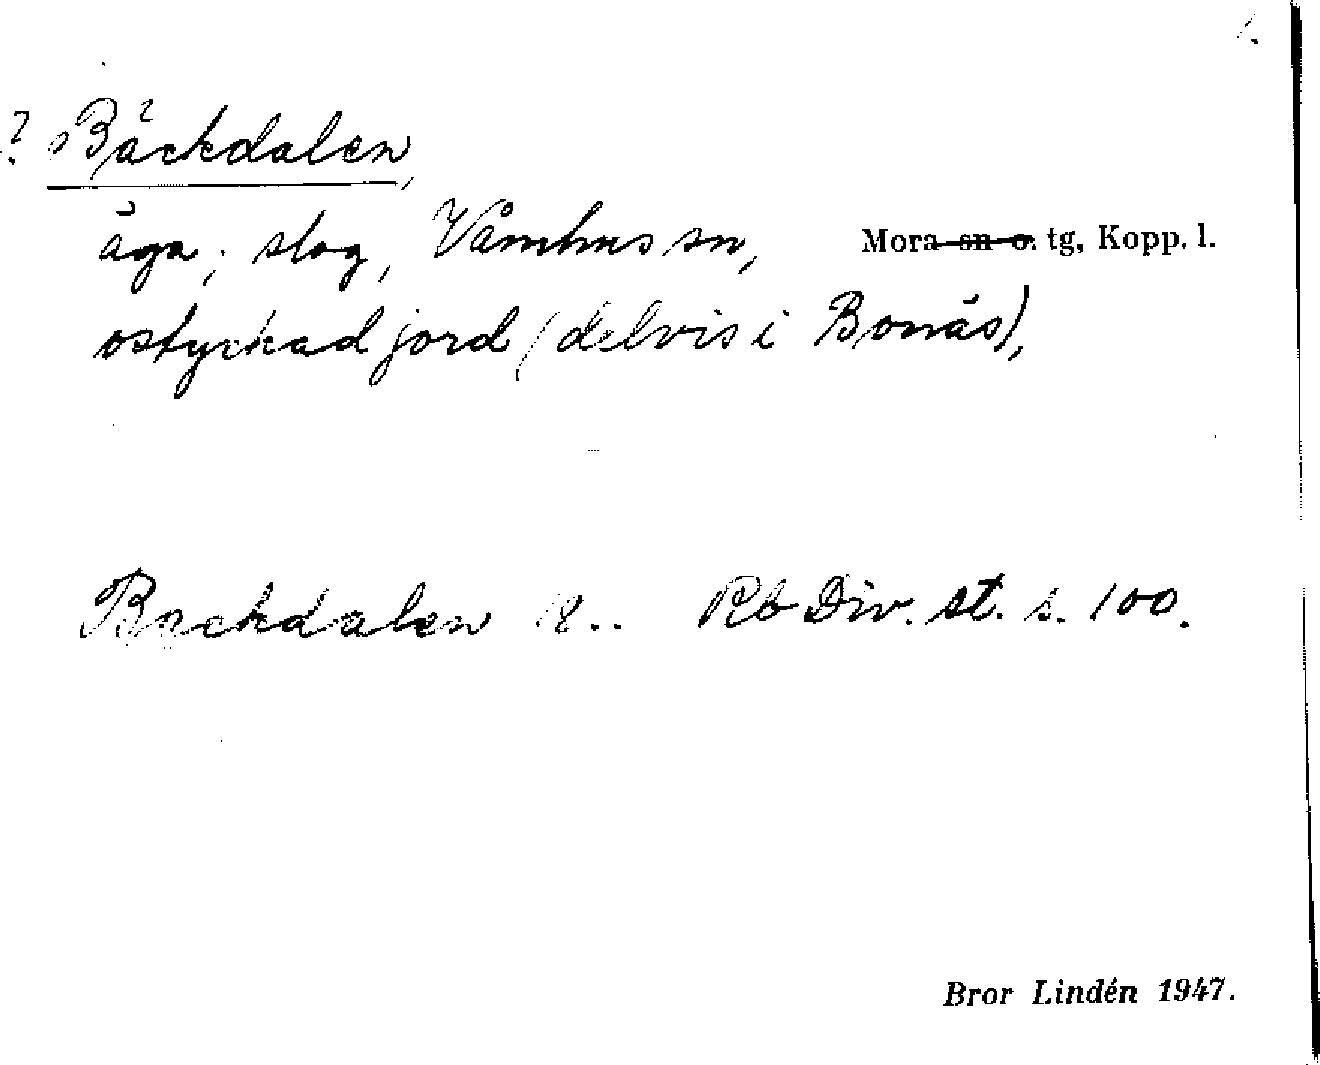 ? Bäckdalen,
äga; slog, Våmhus sn, Mora sn o. tg, Kopp. l.
ostyckad jord (delvis i Bonäs),
Backdalen 18.. Rb Div. st. s. 100.
Bror Lindén 1947.